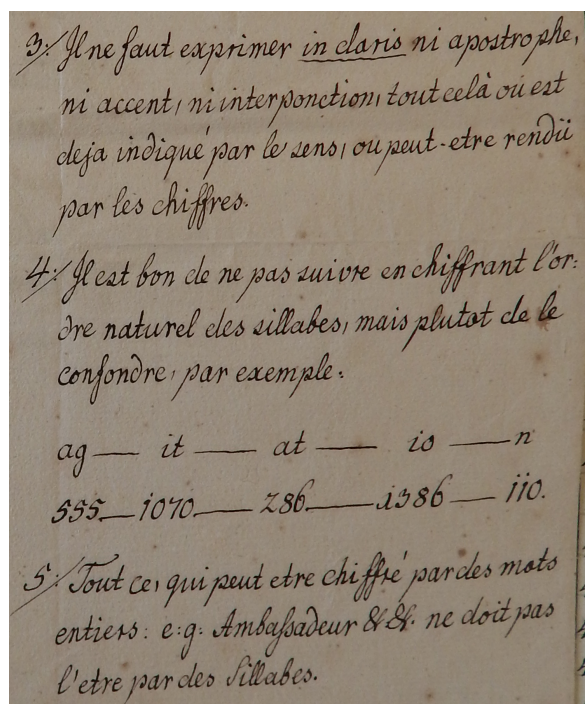 3:/ Il ne faut exprimer in claris ni apostrophe,
ni accent, ni interponction, tout celà ou est
deja indiqué par le sens, ou peut-etre rendü
par les chiffres.
4:/ Il est bon de ne pas suivre en chiffrant l'or:
dre naturel des sillabes, mais plutot de le
confondre, par exemple:
ag — it — at — io — n
555 — 1070 — 286 — 1386 — 110.
5:/ Tout ce, qui peut etre chiffré par des mots
entiers: e:g: Ambaſsadeur &c &c. ne doit pas
l'etre par des Sillabes.